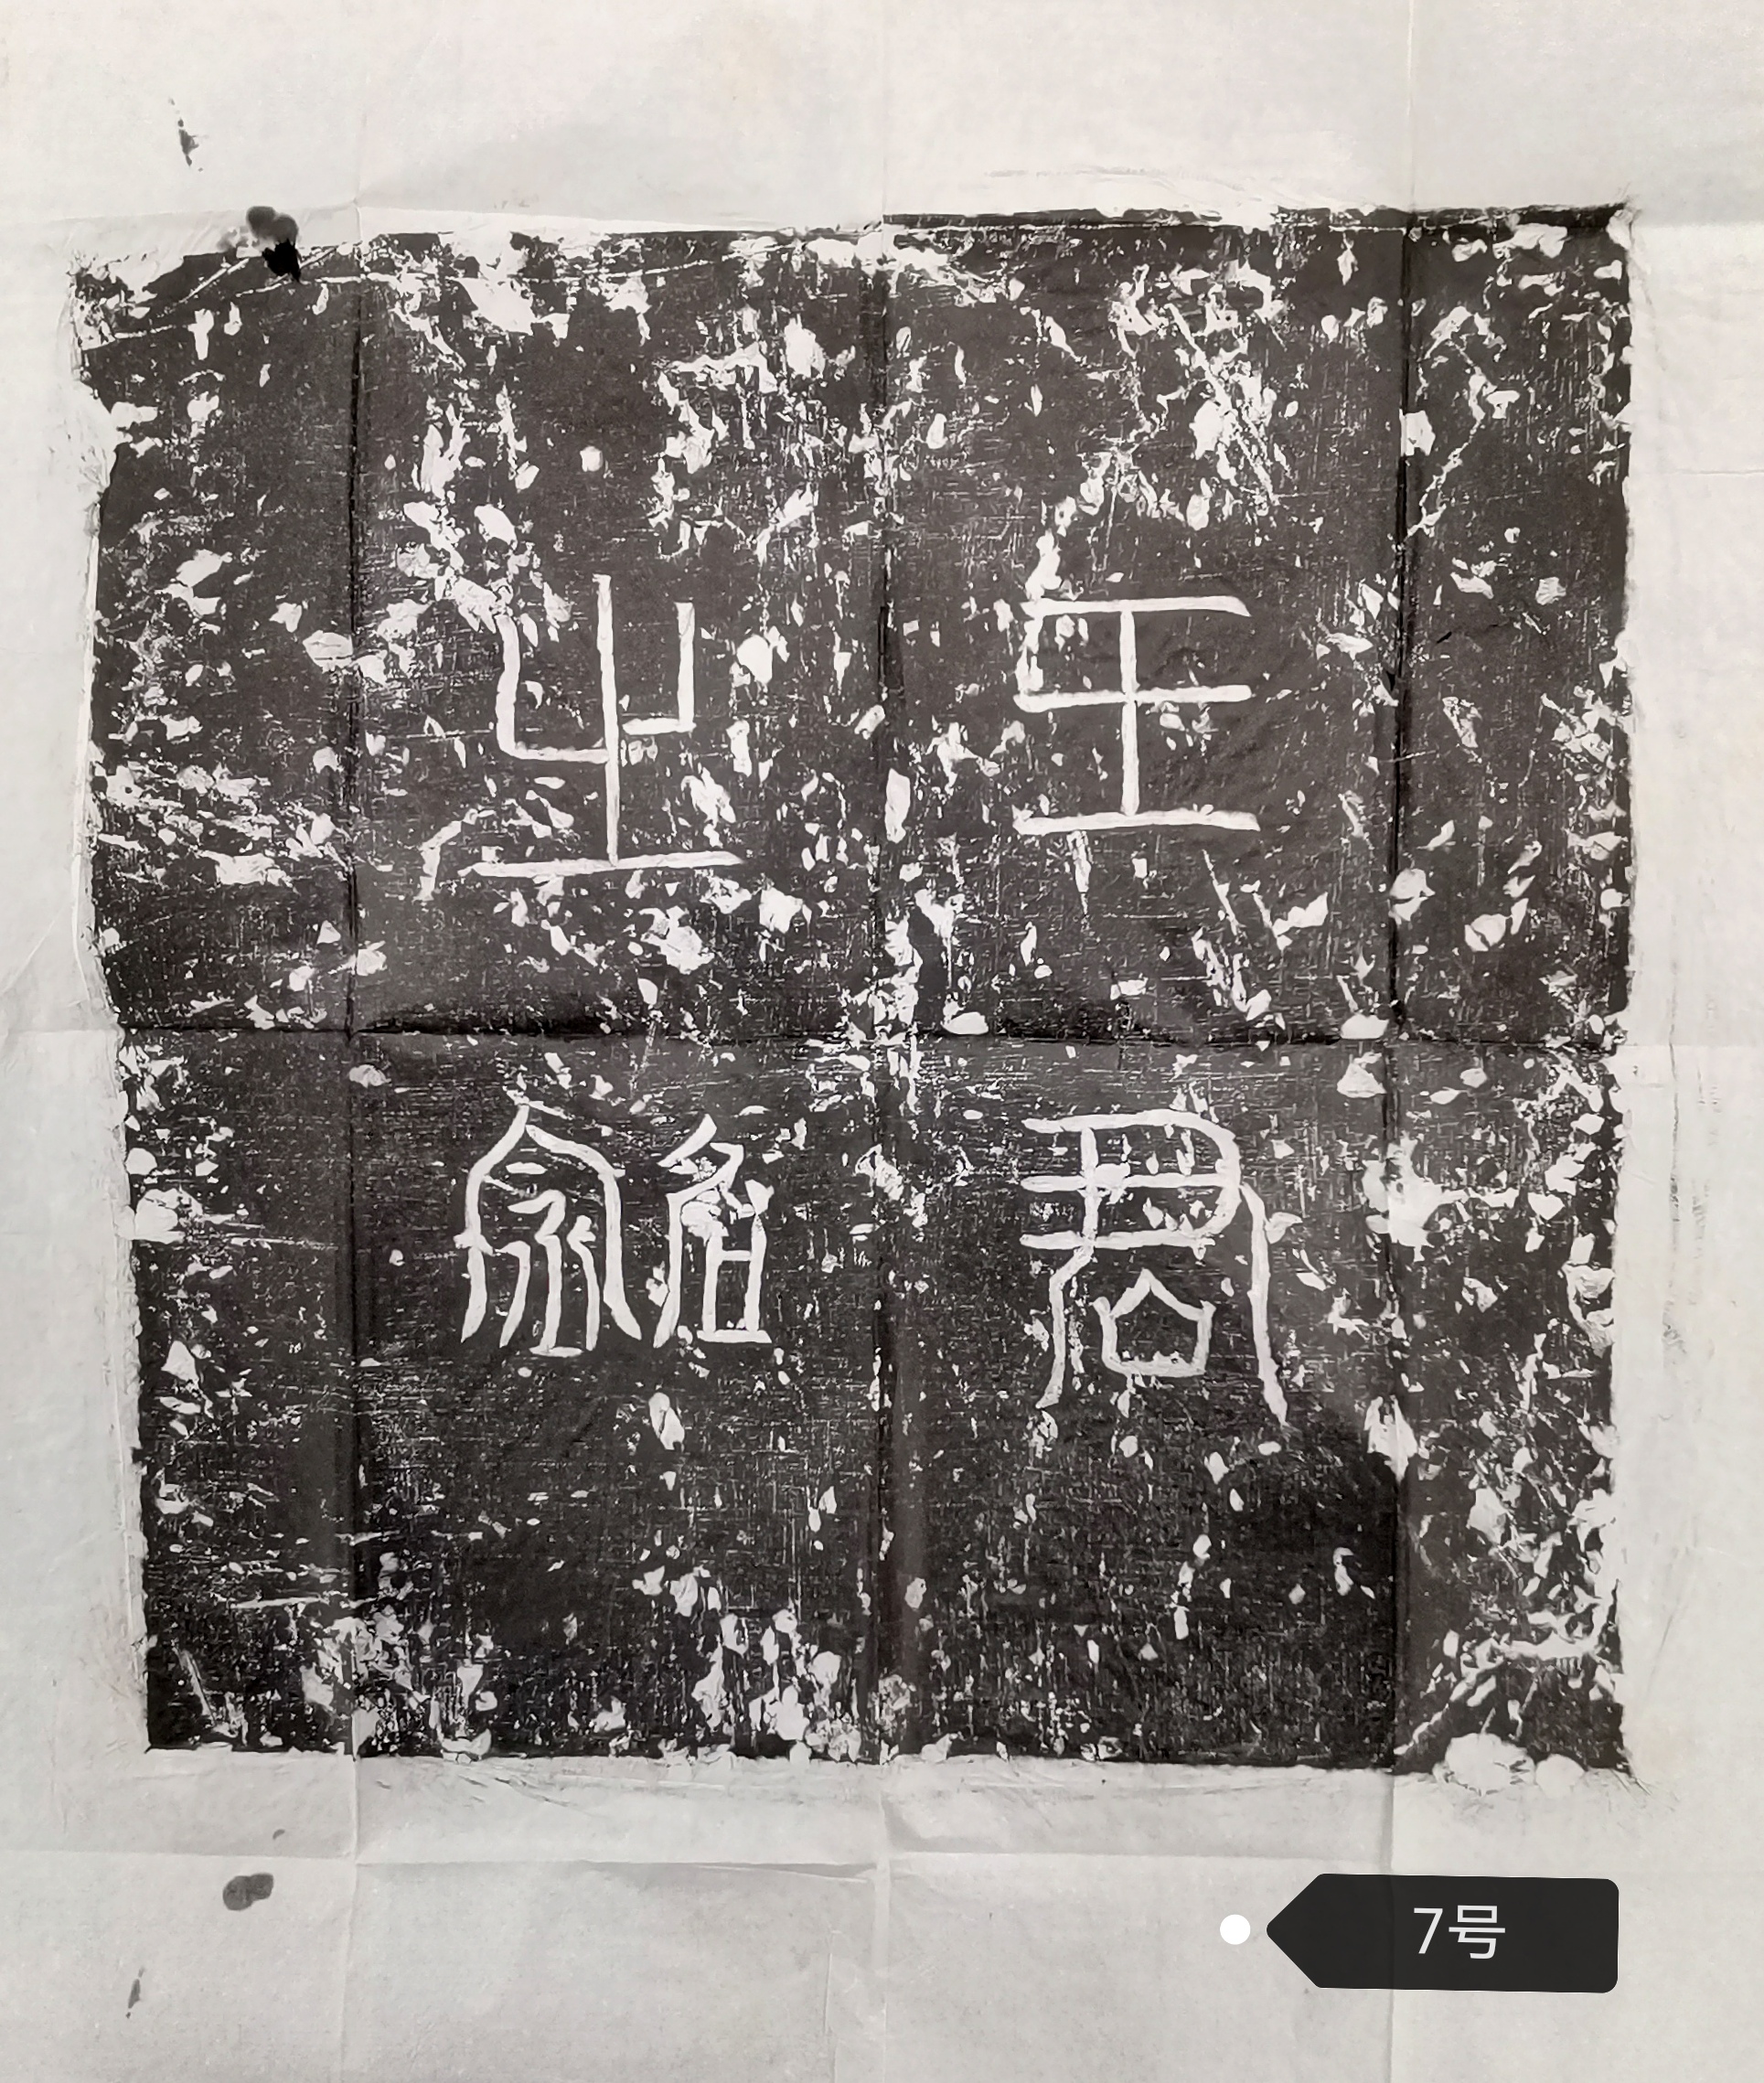 王君
之銘
7号